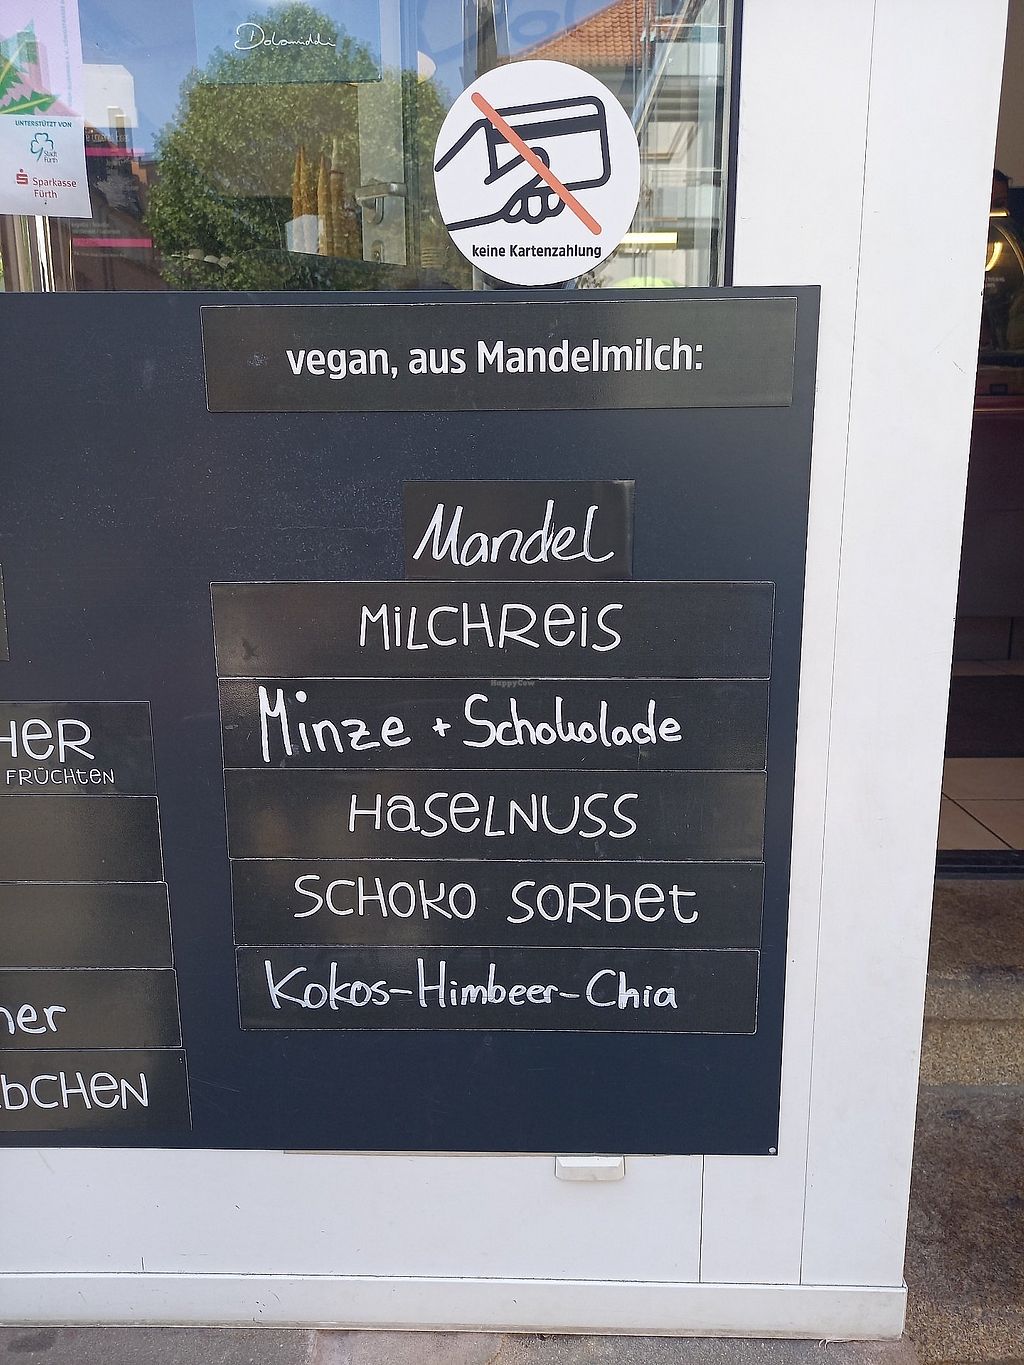 Dolomiddi
UNTERSTÜTZT VON
Stadt
Fürth
Sparkasse
Fürth
keine Kartenzahlung
vegan, aus Mandelmilch:
Mandel
MiLCHReiS
Minze + Schokolade
HaSeLNUSS
SCHOKO SORbet
Kokos-Himbeer-Chia
HappyCow
HeR
FRÜCHteN
ner
bCHeN